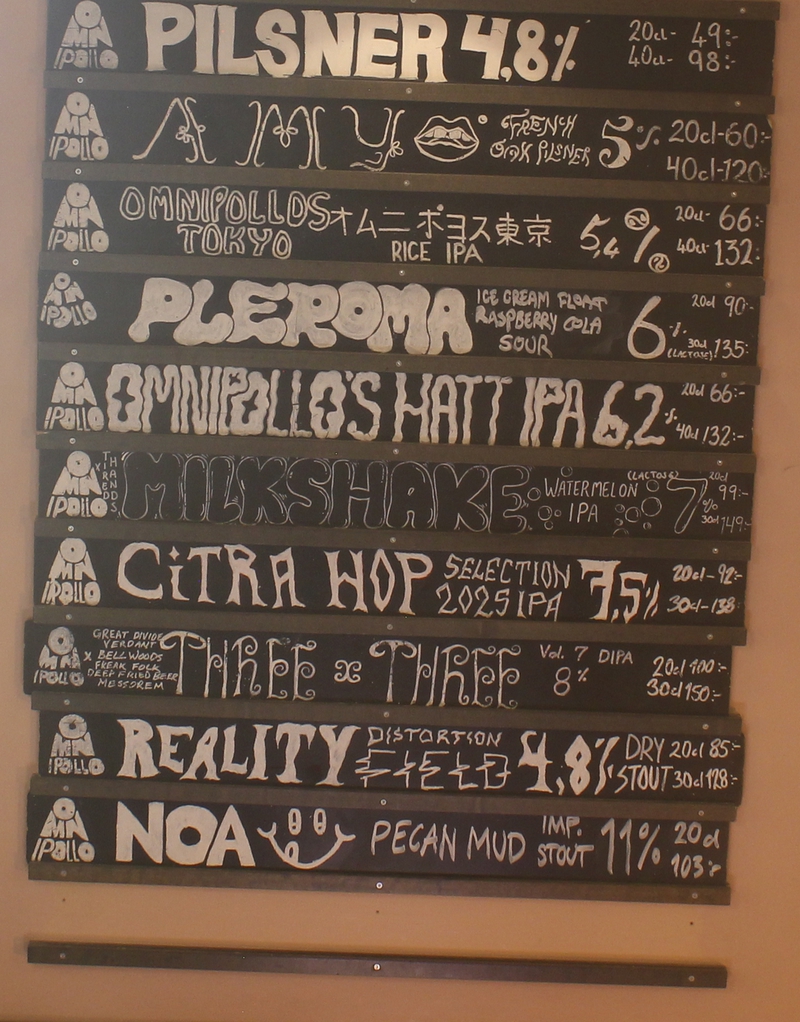 OMNIPOLLO PILSNER 4,8% 20cl- 49:-
40cl- 98:-
OMNIPOLLO AMY FRENCH OAK PILSNER 5% 20cl-60:-
40cl-120:-
OMNIPOLLO OMNIPOLLOS TOKYO オムニポヨス東京 RICE IPA 5,4% 20cl- 66:-
40cl- 132:-
OMNIPOLLO PLEROMA ICE CREAM FLOAT RASPBERRY COLA SOUR 6% (LACTOSE) 20cl 90:-
30cl 135:-
OMNIPOLLO OMNIPOLLO'S HATT IPA 6,2% 20cl 66:-
40cl 132:-
OMNIPOLLO x TRENDS MILKSHAKE WATERMELON IPA (LACTOSE) 7% 20cl 99:-
30cl 149:-
OMNIPOLLO CiTRA HOP SELECTION 2025 IPA 7,5% 20cl- 92:-
30cl- 138:-
OMNIPOLLO x GREAT DIVIDE VERDANT BELLWOODS FREAK FOLK DEEP FRIED BEER MESSOREM THREE x THREE Vol. 7 DIPA 8% 20cl 100:-
30cl 150:-
OMNIPOLLO REALITY DISTORTION FIELD 4,8% DRY STOUT 20cl 85:-
30cl 128:-
OMNIPOLLO NOA PECAN MUD IMP. STOUT 11% 20cl
103:-